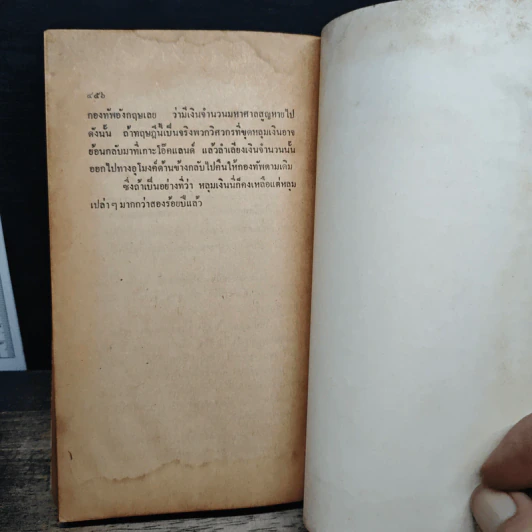 ๔๕๖
กองทัพอังกฤษเลย ว่ามีเงินจำนวนมหาศาลสูญหายไป
ดังนั้น ถ้าทฤษฎีนี้เป็นจริงพวกวิศวกรที่ขุดหลุมเงินอาจ
ย้อนกลับมาที่เกาะโอ๊คแลนด์ แล้วลำเลียงเงินจำนวนนั้น
ออกไปทางอุโมงค์ด้านข้างกลับไปคืนให้กองทัพตามเดิม
ซึ่งถ้าเป็นอย่างที่ว่า หลุมเงินนี้ก็คงเหลือแต่หลุม
เปล่า ๆ มากกว่าสองร้อยปีแล้ว